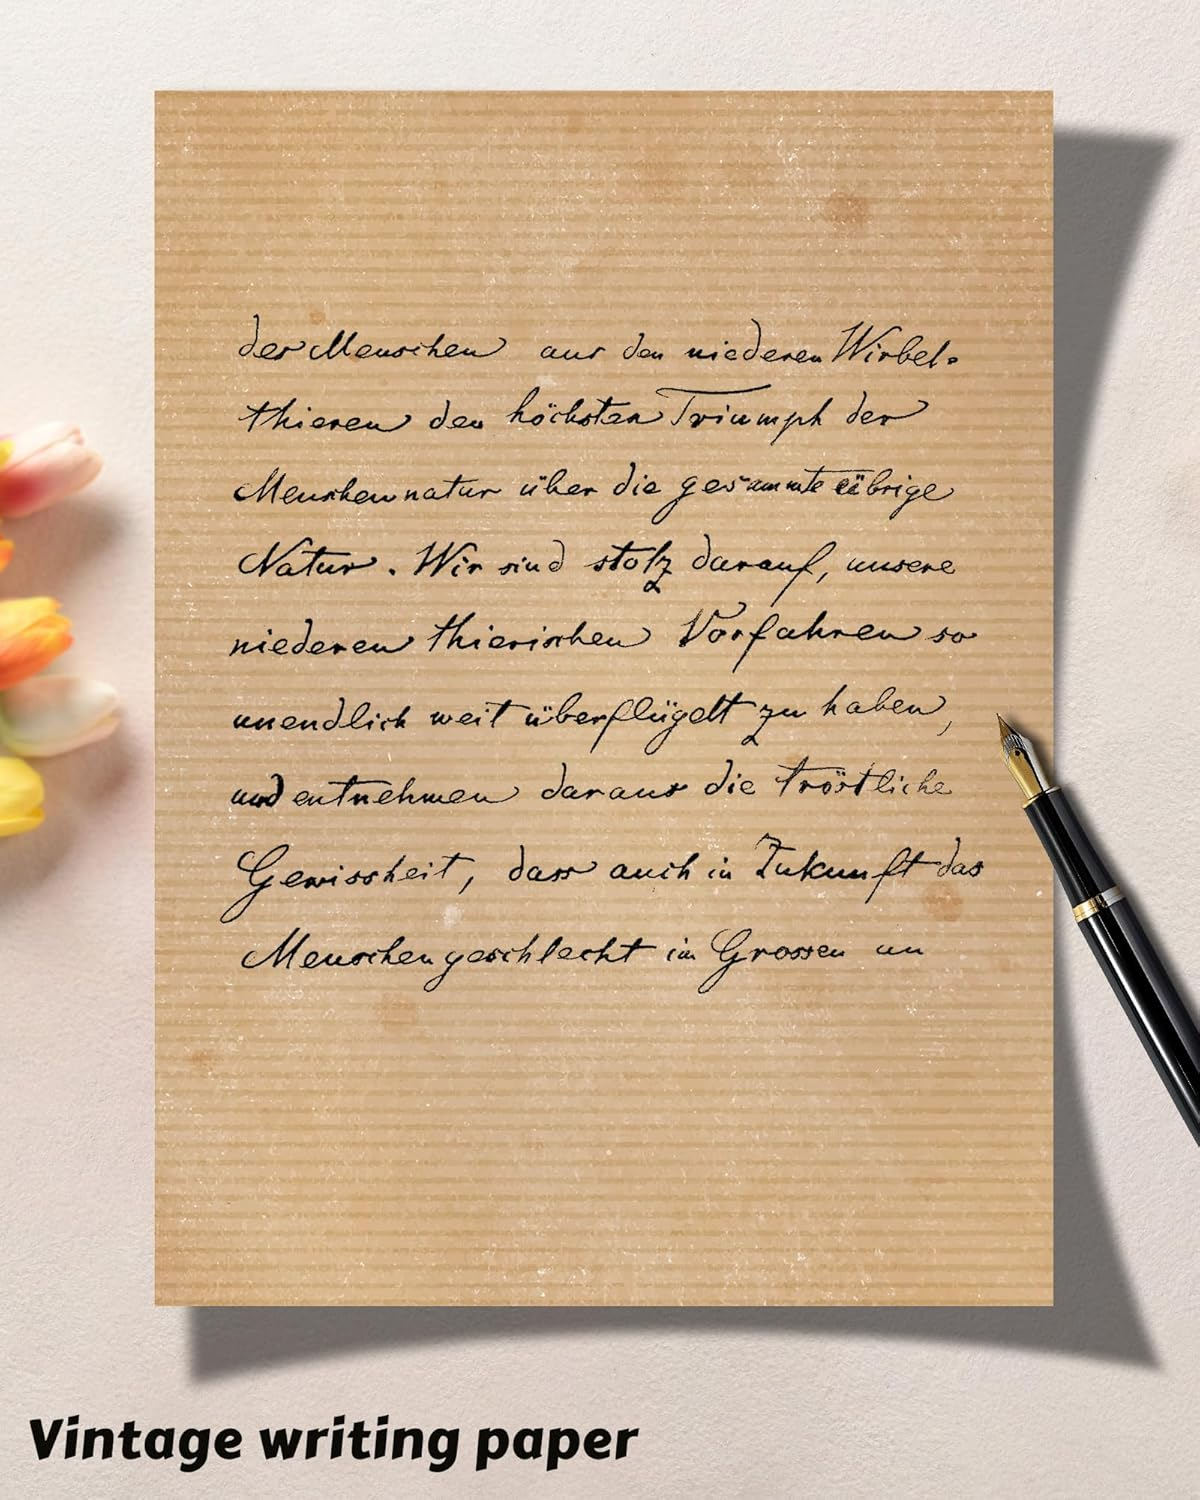 des Menschen aus den niederen Wirbel-
thieren den höchsten Triumph der
Menschennatur über die gesammte übrige
Natur. Wir sind stolz darauf, unsere
niederen thierischen Vorfahren so
unendlich weit überflügelt zu haben,
und entnehmen daraus die tröstliche
Gewissheit, dass auch in Zukunft das
Menschengeschlecht im Grossen un
Vintage writing paper